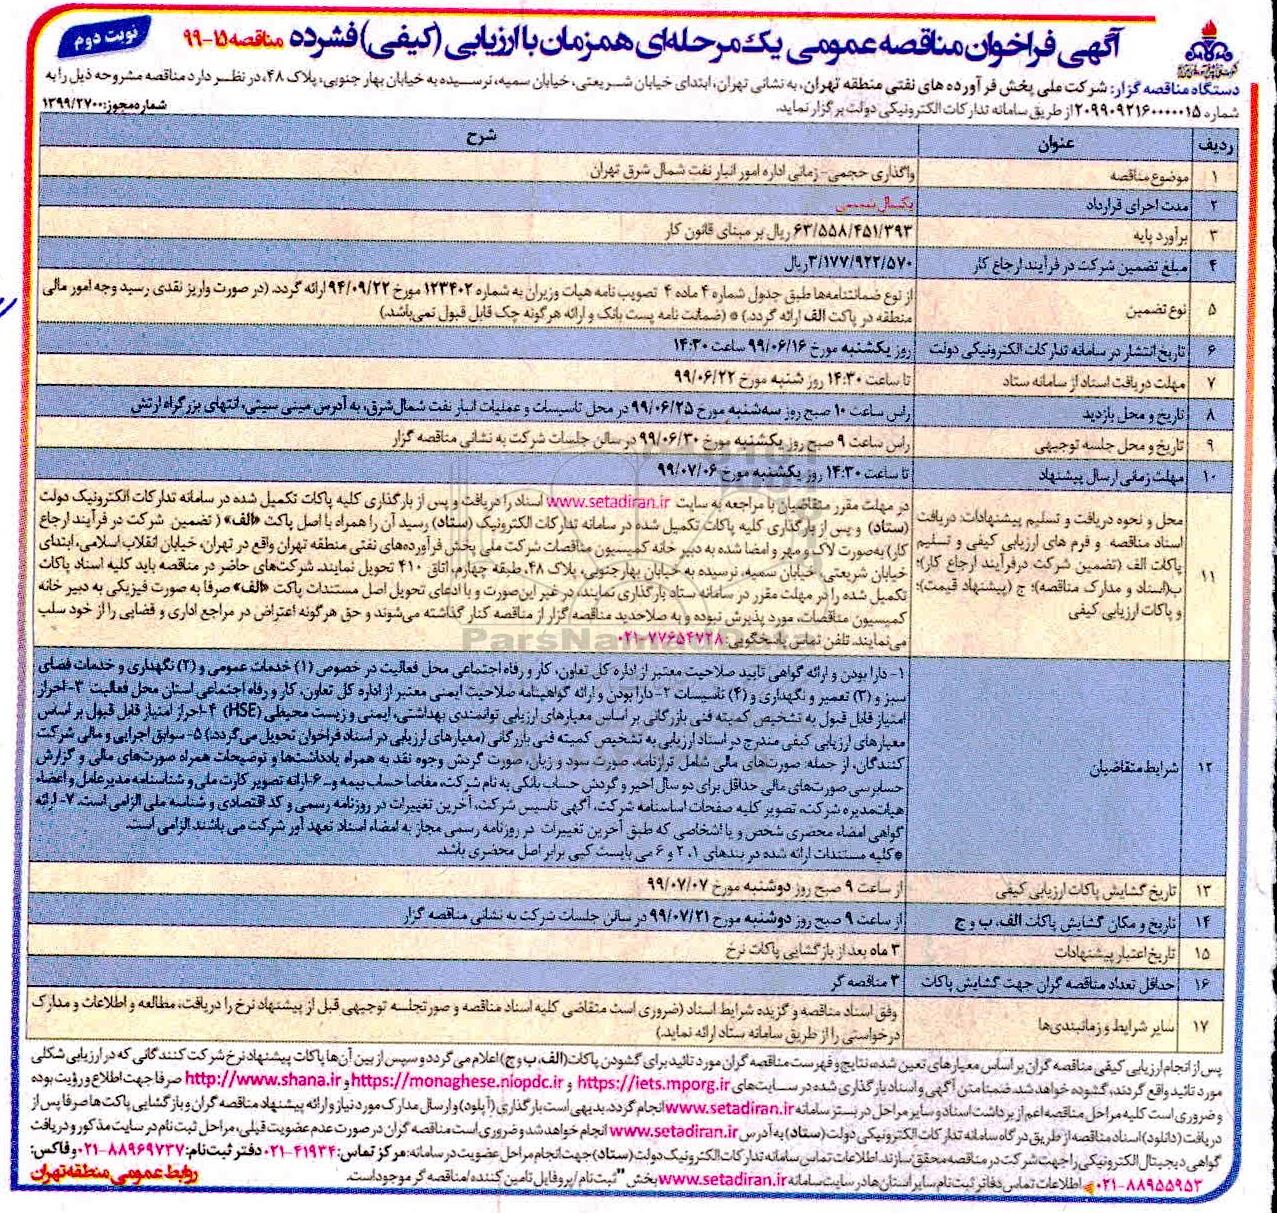 نوبت دوم
آگهی فراخوان مناقصه عمومی یک مرحله‌ای همزمان با ارزیابی (کیفی) فشرده مناقصه ۱۵-۹۹
دستگاه مناقصه گزار: شرکت ملی پخش فرآورده های نفتی منطقه تهران، به نشانی تهران، ابتدای خیابان شریعتی، خیابان سمیه، نرسیده به خیابان بهار جنوبی، پلاک ۴۸، در نظر دارد مناقصه مشروحه ذیل را به
شماره ۲۰۹۹۰۹۲۱۶۰۰۰۰۰۱۵ از طریق سامانه تدارکات الکترونیکی دولت برگزار نماید.
شماره مجوز: ۱۳۹۹/۲۷۰۰
ردیف عنوان شرح
۱ موضوع مناقصه واگذاری حجمی-زمانی اداره امور انبار نفت شمال شرق تهران
۲ مدت اجرای قرارداد یکسال شمسی
۳ برآورد پایه ۶۳/۵۵۸/۴۵۱/۳۹۳ ریال بر مبنای قانون کار
۴ مبلغ تضمین شرکت در فرآیند ارجاع کار ۳/۱۷۷/۹۲۲/۵۷۰ ریال
۵ نوع تضمین از نوع ضمانتنامه‌ها طبق جدول شماره ۴ ماده ۴ تصویب نامه هیات وزیران به شماره ۱۲۳۴۰۲ مورخ ۹۴/۰۹/۲۲ ارائه گردد. (در صورت واریز نقدی رسید وجه امور مالی
منطقه در پاکت الف ارائه گردد.) * (ضمانت نامه پست بانک و ارائه هرگونه چک قابل قبول نمی‌باشد.)
۶ تاریخ انتشار در سامانه تدارکات الکترونیکی دولت روز یکشنبه مورخ ۹۹/۰۶/۱۶ ساعت ۱۴:۳۰
۷ مهلت دریافت اسناد از سامانه ستاد تا ساعت ۱۴:۳۰ روز شنبه مورخ ۹۹/۰۶/۲۲
۸ تاریخ و محل بازدید راس ساعت ۱۰ صبح روز سه‌شنبه مورخ ۹۹/۰۶/۲۵ در محل تاسیسات و عملیات انبار نفت شمال‌شرق، به آدرس مینی سیتی، انتهای بزرگراه ارتش
۹ تاریخ و محل جلسه توجیهی راس ساعت ۹ صبح روز یکشنبه مورخ ۹۹/۰۶/۳۰ در سالن جلسات شرکت به نشانی مناقصه گزار
۱۰ مهلت زمانی ارسال پیشنهاد تا ساعت ۱۴:۳۰ روز یکشنبه مورخ ۹۹/۰۷/۰۶
۱۱ محل و نحوه دریافت و تسلیم پیشنهادات: دریافت
اسناد مناقصه و فرم های ارزیابی کیفی و تسلیم
پاکات الف (تضمین شرکت درفرآیند ارجاع کار)؛
ب(اسناد و مدارک مناقصه)؛ ج (پیشنهاد قیمت)؛
و پاکات ارزیابی کیفی
در مهلت مقرر متقاضیان با مراجعه به سایت www.setadiran.ir اسناد را دریافت و پس از بارگذاری کلیه پاکات تکمیل شده در سامانه تدارکات الکترونیک دولت
(ستاد) و پس از بارگذاری کلیه پاکات تکمیل شده در سامانه تدارکات الکترونیک (ستاد) رسید آن را همراه با اصل پاکت «الف» ( تضمین شرکت در فرآیند ارجاع
کار) به‌صورت لاک و مهر و امضا شده به دبیر خانه کمیسیون مناقصات شرکت ملی پخش فرآورده‌های نفتی منطقه تهران واقع در تهران، خیابان انقلاب اسلامی، ابتدای
خیابان شریعتی، خیابان سمیه، نرسیده به خیابان بهارجنوبی، پلاک ۴۸، طبقه چهارم، اتاق ۴۱۰ تحویل نمایند. شرکت‌های حاضر در مناقصه باید کلیه اسناد پاکات
تکمیل شده را در مهلت مقرر در سامانه ستاد بارگذاری نمایند، در غیر این‌صورت و یا ادعای تحویل اصل مستندات پاکت «الف» صرفا به صورت فیزیکی به دبیر خانه
کمیسیون مناقصات، مورد پذیرش نبوده و به صلاحدید مناقصه گزار از مناقصه کنار گذاشته می‌شوند و حق هرگونه اعتراض در مراجع اداری و قضایی را از خود سلب
می‌نمایند. تلفن تماس پاسخگویی: ۷۷۶۵۴۷۲۸-۰۲۱
ParsNamadData
۱۲ شرایط متقاضیان
۱- دارا بودن و ارائه گواهی تایید صلاحیت معتبر از اداره کل تعاون، کار و رفاه اجتماعی محل فعالیت در خصوص (۱) خدمات عمومی و (۲) نگهداری و خدمات فضای
سبز و (۳) تعمیر و نگهداری و (۴) تاسیسات ۲- دارا بودن و ارائه گواهینامه صلاحیت ایمنی معتبر از اداره کل تعاون، کار و رفاه اجتماعی استان محل فعالیت ۳-احراز
امتیاز قابل قبول به تشخیص کمیته فنی بازرگانی بر اساس معیارهای ارزیابی توانمندی بهداشتی، ایمنی و زیست محیطی (HSE) ۴-احراز امتیاز قابل قبول بر اساس
معیارهای ارزیابی کیفی مندرج در اسناد ارزیابی به تشخیص کمیته فنی بازرگانی (معیارهای ارزیابی در اسناد فراخوان تحویل می‌گردد.) ۵-سوابق اجرایی و مالی شرکت
کنندگان، از جمله: صورت‌های مالی شامل ترازنامه، صورت سود و زیان، صورت گردش وجوه نقد به همراه یادداشت‌ها و توضیحات همراه صورت‌های مالی و گزارش
حسابرسی صورت‌های مالی حداقل برای دو سال اخیر و گردش حساب بانکی به نام شرکت، مفاصا حساب بیمه و... ۶-ارائه تصویر کارت ملی و شناسنامه مدیرعامل و اعضاء
هیات‌مدیره شرکت، تصویر کلیه صفحات اساسنامه شرکت، آگهی تاسیس شرکت، آخرین تغییرات در روزنامه رسمی و کد اقتصادی و شناسه ملی الزامی است. ۷-ارائه
گواهی امضاء محضری شخص و یا اشخاصی که طبق آخرین تغییرات در روزنامه رسمی مجاز به امضاء اسناد تعهد آور شرکت می باشند الزامی است.
*کلیه مستندات ارائه شده در بندهای ۱، ۲ و ۶ می بایست کپی برابر اصل محضری باشد.
۱۳ تاریخ گشایش پاکات ارزیابی کیفی از ساعت ۹ صبح روز دوشنبه مورخ ۹۹/۰۷/۰۷
۱۴ تاریخ و مکان گشایش پاکات الف، ب و ج از ساعت ۹ صبح روز دوشنبه مورخ ۹۹/۰۷/۲۱ در سالن جلسات شرکت به نشانی مناقصه گزار
۱۵ تاریخ اعتبار پیشنهادات ۳ ماه بعد از بازگشایی پاکات نرخ
۱۶ حداقل تعداد مناقصه گران جهت گشایش پاکات ۳ مناقصه گر
۱۷ سایر شرایط و زمانبندی‌ها وفق اسناد مناقصه و گزیده شرایط اسناد (ضروری است متقاضی کلیه اسناد مناقصه و صورتجلسه توجیهی قبل از پیشنهاد نرخ را دریافت، مطالعه و اطلاعات و مدارک
درخواستی را از طریق سامانه ستاد ارائه نماید.)
پس از انجام ارزیابی کیفی مناقصه گران بر اساس معیارهای تعیین شده، نتایج و فهرست مناقصه گران مورد تائید برای گشودن پاکات (الف، ب و ج) اعلام می گردد و سپس از بین آن‌ها پاکات پیشنهاد نرخ شرکت کنندگانی که در ارزیابی شکلی
مورد تائید واقع گردند، گشوده خواهد شد. ضمنا متن آگهی و اسناد بارگذاری شده در سایت‌های https://iets.mporg.ir و https://monaghese.niopdc.ir و http://www.shana.ir صرفا جهت اطلاع و رؤیت بوده
و ضروری است کلیه مراحل مناقصه اعم از برداشت اسناد و سایر مراحل در بستر سامانه www.setadiran.ir انجام گردد. بدیهی است بارگذاری (آپلود) و ارسال مدارک مورد نیاز و ارائه پیشنهاد مناقصه گران و بازگشایی پاکات‌ها صرفا پس از
دریافت (دانلود) اسناد مناقصه از طریق درگاه سامانه تدارکات الکترونیکی دولت (ستاد) به آدرس www.setadiran.ir انجام خواهد شد و ضروری است مناقصه گران در صورت عدم عضویت قبلی، مراحل ثبت نام در سایت مذکور و دریافت
گواهی دیجیتال الکترونیکی را جهت شرکت در مناقصه محقق سازند. اطلاعات تماس سامانه تدارکات الکترونیک دولت (ستاد) جهت انجام مراحل عضویت در سامانه: مرکز تماس: ۴۱۹۳۴-۰۲۱ دفتر ثبت نام: ۸۸۹۶۹۷۳۷-۰۲۱ و فاکس:
۸۸۹۵۵۹۵۳-۰۲۱ اطلاعات تماس دفاتر ثبت نام سایر استان ها در سایت سامانه www.setadiran.ir بخش "ثبت نام/پروفایل تامین کننده/مناقصه گر موجود است.
روابط عمومی منطقه تهران